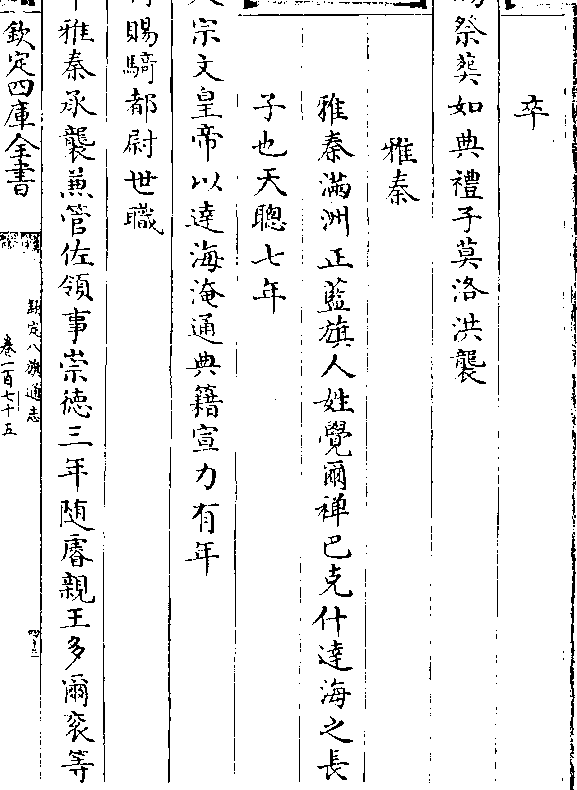 卒
祭葬如典禮子莫洛洪襲
雅秦
雅秦滿洲正藍旗人姓覺爾禅巴克什達海之長
子也天聰七年
宗文皇帝以達海淹通典籍宣力有年
賜騎都尉世職
雅秦承襲兼管佐領事崇德三年随睿親王多爾衮等
欽定四庫全書
欽定八旗通志
卷一百七十五